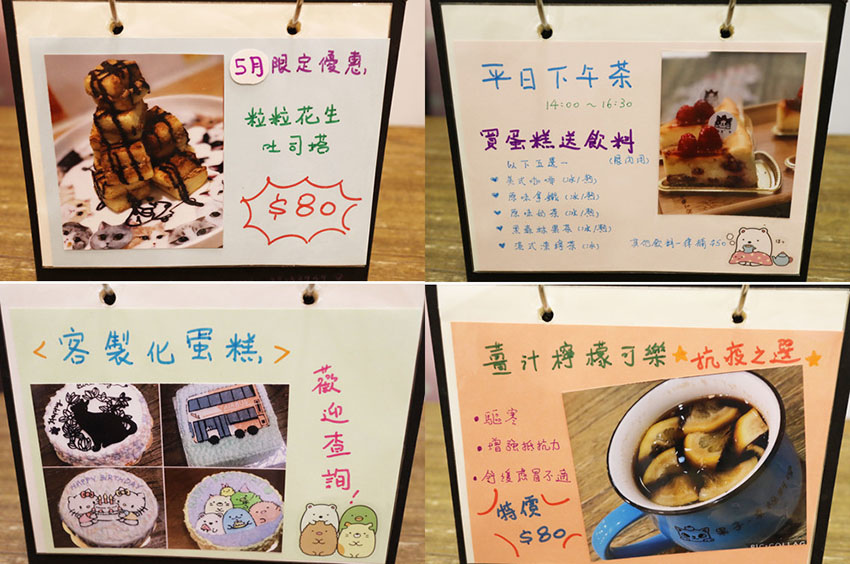 5月限定優惠
粒粒花生
吐司塔
$80
平日下午茶
14:00～16:30
買蛋糕送飲料
(限內用)
以下五選一
美式咖啡(冰/熱)
原味拿鐵(冰/熱)
原味奶茶(冰/熱)
(冰/熱)
(冰)
其他飲料一律補$50
<客製化蛋糕>
歡迎查詢!
HAPPY BIRTHDAY
薑汁檸檬可樂★抗疫之選★
•驅寒
•增強抵抗力
•舒緩感冒不適
特價
$80